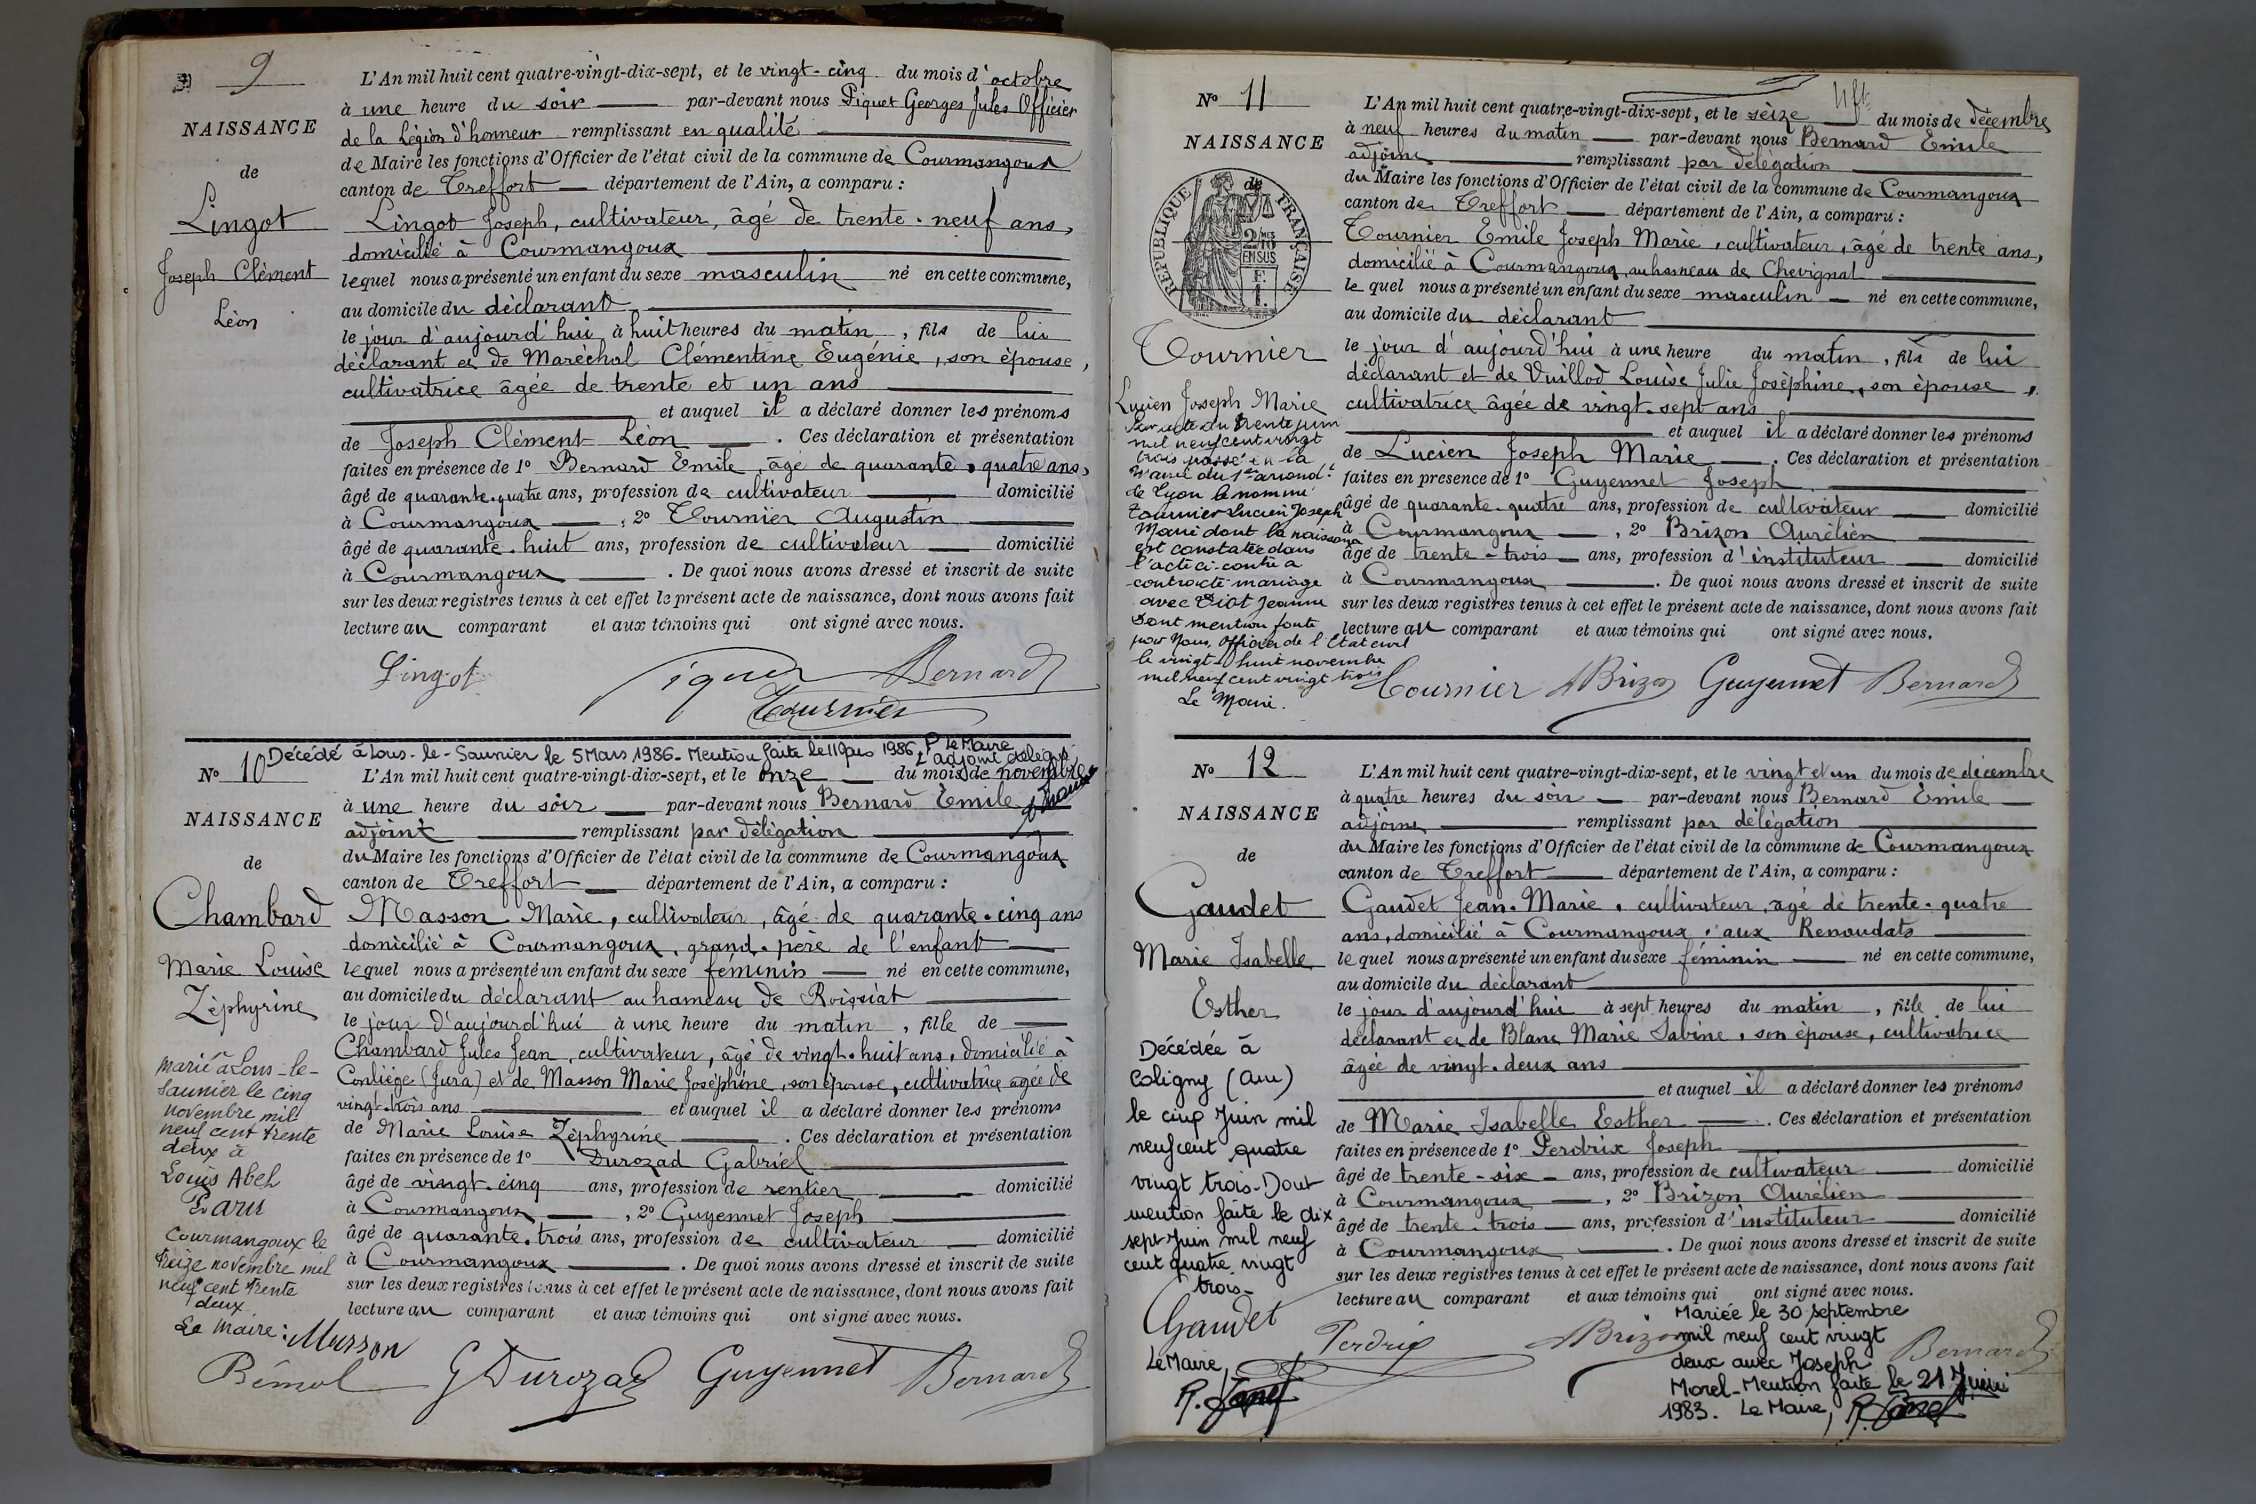 9
NAISSANCE
de
Lingot
Joseph Clément
Léon
L'An mil huit cent quatre-vingt-dix-sept, et le vingt-cinq du mois d'octobre
à une heure du soir par-devant nous Piquet Georges Jules Officier
de la Légion d'honneur remplissant en qualité
de Maire les fonctions d'Officier de l'état civil de la commune de Courmangoux
canton de Treffort département de l'Ain, a comparu :
Lingot Joseph, cultivateur, âgé de trente-neuf ans,
domicilié à Courmangoux
lequel nous a présenté un enfant du sexe masculin né en cette commune,
au domicile du déclarant
le jour d'aujourd'hui à huit heures du matin, fils de lui
déclarant et de Maréchal Clémentine Eugénie, son épouse,
cultivatrice âgée de trente et un ans
et auquel il a déclaré donner les prénoms
de Joseph Clément Léon. Ces déclaration et présentation
faites en présence de 1º Bernard Emile, âgé de quarante-quatre ans,
âgé de quarante-quatre ans, profession de cultivateur domicilié
à Courmangoux, 2º Tournier Augustin
âgé de quarante-huit ans, profession de cultivateur domicilié
à Courmangoux. De quoi nous avons dressé et inscrit de suite
sur les deux registres tenus à cet effet le présent acte de naissance, dont nous avons fait
lecture au comparant et aux témoins qui ont signé avec nous.
Lingot Piquet Bernard
Tournier
Décédé à Lons-le-Saunier le 5 Mars 1986 - Mention faite le 11 Mars 1986, P. Le Maire
L'adjoint délégué
Nº 10
NAISSANCE
de
Chambard
Marie Louise
Zéphyrine
marié à Lons-le-
Saunier le cinq
novembre mil
neuf cent trente
deux à
Louis Abel
Courmangoux le
treize novembre mil
neuf cent trente
deux.
Le Maire :
L'An mil huit cent quatre-vingt-dix-sept, et le onze du mois de novembre
à une heure du soir par-devant nous Bernard Emile
adjoint remplissant par délégation
du Maire les fonctions d'Officier de l'état civil de la commune de Courmangoux
canton de Treffort département de l'Ain, a comparu :
Masson Marie, cultivateur, âgé de quarante-cinq ans
domicilié à Courmangoux, grand-père de l'enfant
lequel nous a présenté un enfant du sexe féminin né en cette commune,
au domicile du déclarant au hameau de Roissiat
le jour d'aujourd'hui à une heure du matin, fille de
Chambard Jules Jean, cultivateur, âgé de vingt-huit ans, domicilié à
Conliège (Jura) et de Masson Marie Joséphine, son épouse, cultivatrice âgée de
vingt-trois ans et auquel il a déclaré donner les prénoms
de Marie Louise Zéphyrine. Ces déclaration et présentation
faites en présence de 1º Durozad Gabriel
âgé de vingt-cinq ans, profession de rentier domicilié
à Courmangoux, 2º Guyennet Joseph
âgé de quarante-trois ans, profession de cultivateur domicilié
à Courmangoux. De quoi nous avons dressé et inscrit de suite
sur les deux registres tenus à cet effet le présent acte de naissance, dont nous avons fait
lecture au comparant et aux témoins qui ont signé avec nous.
Masson
G Durozad Guyennet Bernard
Nº 11
NAISSANCE
de
RÉPUBLIQUE FRANÇAISE
2/10 MES
EN SUS
F.
1.
Tournier
Lucien Joseph Marie
Par acte du trente juin
mil neuf cent vingt
trois passé à la
Mairie du 1er arrondt
de Lyon le nommé
Tournier Lucien Joseph
Marie dont la naissance
est constatée dans
l'acte ci-contre a
contracté mariage
avec Viot Jeanne
Dont mention faite
par Nous, Officier de l'Etat civil
le vingt-huit novembre
mil neuf cent vingt trois
Le Maire.
L'An mil huit cent quatre-vingt-dix-sept, et le seize du mois de décembre
à neuf heures du matin par-devant nous Bernard Emile
adjoint remplissant par délégation
du Maire les fonctions d'Officier de l'état civil de la commune de Courmangoux
canton de Treffort département de l'Ain, a comparu :
Tournier Emile Joseph Marie, cultivateur, âgé de trente ans,
domicilié à Courmangoux, au hameau de Chevignat
lequel nous a présenté un enfant du sexe masculin né en cette commune,
au domicile du déclarant
le jour d'aujourd'hui à une heure du matin, fils de lui
déclarant et de Vuillod Louise Julie Joséphine, son épouse,
cultivatrice âgée de vingt-sept ans
et auquel il a déclaré donner les prénoms
de Lucien Joseph Marie. Ces déclaration et présentation
faites en présence de 1º Guyennet Joseph
âgé de quarante-quatre ans, profession de cultivateur domicilié
à Courmangoux, 2º Brizon Aurélien
âgé de trente-trois ans, profession d'instituteur domicilié
à Courmangoux. De quoi nous avons dressé et inscrit de suite
sur les deux registres tenus à cet effet le présent acte de naissance, dont nous avons fait
lecture au comparant et aux témoins qui ont signé avec nous.
Tournier ABrizon Guyennet Bernard
Nº 12
NAISSANCE
de
Gaudet
Marie Isabelle
Esther
Décédée à
Coligny (Ain)
le cinq Juin mil
neuf cent quatre
vingt trois - Dont
mention faite le dix
sept Juin mil neuf
cent quatre vingt
trois -
L'An mil huit cent quatre-vingt-dix-sept, et le vingt et un du mois de décembre
à quatre heures du soir par-devant nous Bernard Emile
adjoint remplissant par délégation
du Maire les fonctions d'Officier de l'état civil de la commune de Courmangoux
canton de Treffort département de l'Ain, a comparu :
Gaudet Jean-Marie, cultivateur, âgé de trente-quatre
ans, domicilié à Courmangoux, aux Renoudats
lequel nous a présenté un enfant du sexe féminin né en cette commune,
au domicile du déclarant
le jour d'aujourd'hui à sept heures du matin, fille de lui
déclarant et de Blanc Marie Sabine, son épouse, cultivatrice
âgée de vingt-deux ans
et auquel il a déclaré donner les prénoms
de Marie Isabelle Esther. Ces déclaration et présentation
faites en présence de 1º Perdrix Joseph
âgé de trente-six ans, profession de cultivateur domicilié
à Courmangoux, 2º Brizon Aurélien
âgé de trente-trois ans, profession d'instituteur domicilié
à Courmangoux. De quoi nous avons dressé et inscrit de suite
sur les deux registres tenus à cet effet le présent acte de naissance, dont nous avons fait
lecture au comparant et aux témoins qui ont signé avec nous.
Gaudet Perdrix ABrizon Bernard
Le Maire
Mariée le 30 Septembre
mil neuf cent vingt
deux avec Joseph
Morel - Mention faite le 21 Juin
1983. Le Maire,